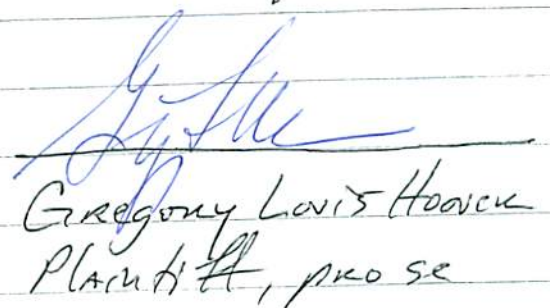 Gregory Louis Hoover
Plaintiff, pro se